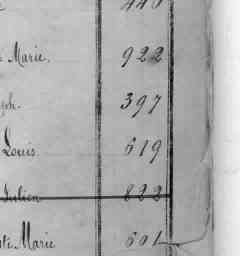 440
Marie. 922
ph. 397
Louis. 619
Julien 822
te Marie 601